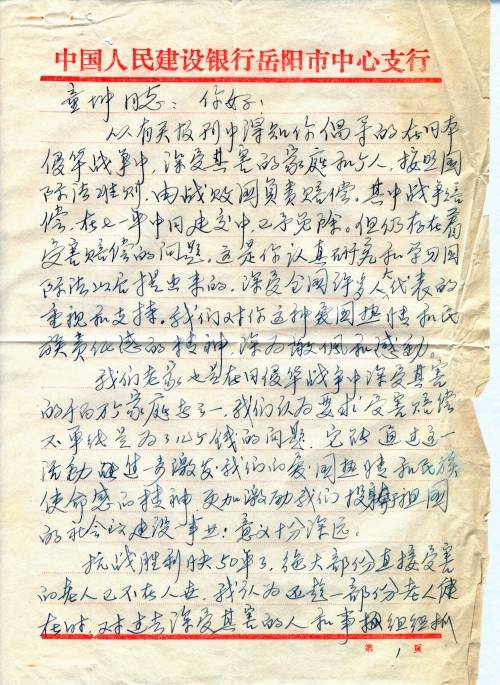 中国人民建设银行岳阳市中心支行
童坤同志：你好！
从有关报刊中得知你倡导的在日本
侵华战争中，深受其害的家庭和个人，按照国
际法准则，由战败国负责赔偿。其中战争赔
偿，在七一年中日建交中，已予免除。但仍存在着
受害赔偿的问题，这是你认真研究和学习国
际法以后提出来的，深受全国许多人大代表的
重视和支持。我们对你这种爱国热情和民
族责任感的精神，深为敬佩和感动。
我们老家也是在日侵华战争中深受其害
的 家庭之一，我们认为要求受害赔偿
不单纯是为了几个钱的问题，它能通过这一
活动进一步激发我们的爱国热情和民族
使命感的精神，更加激励我们投身祖国
的社会主义建设事业；意义十分深远。
抗战胜利快50年了，绝大部份直接受害
的老人已不在人世，我认为还趁一部份老人健
在时，对过去深受其害的人和事 组织抓
第1页